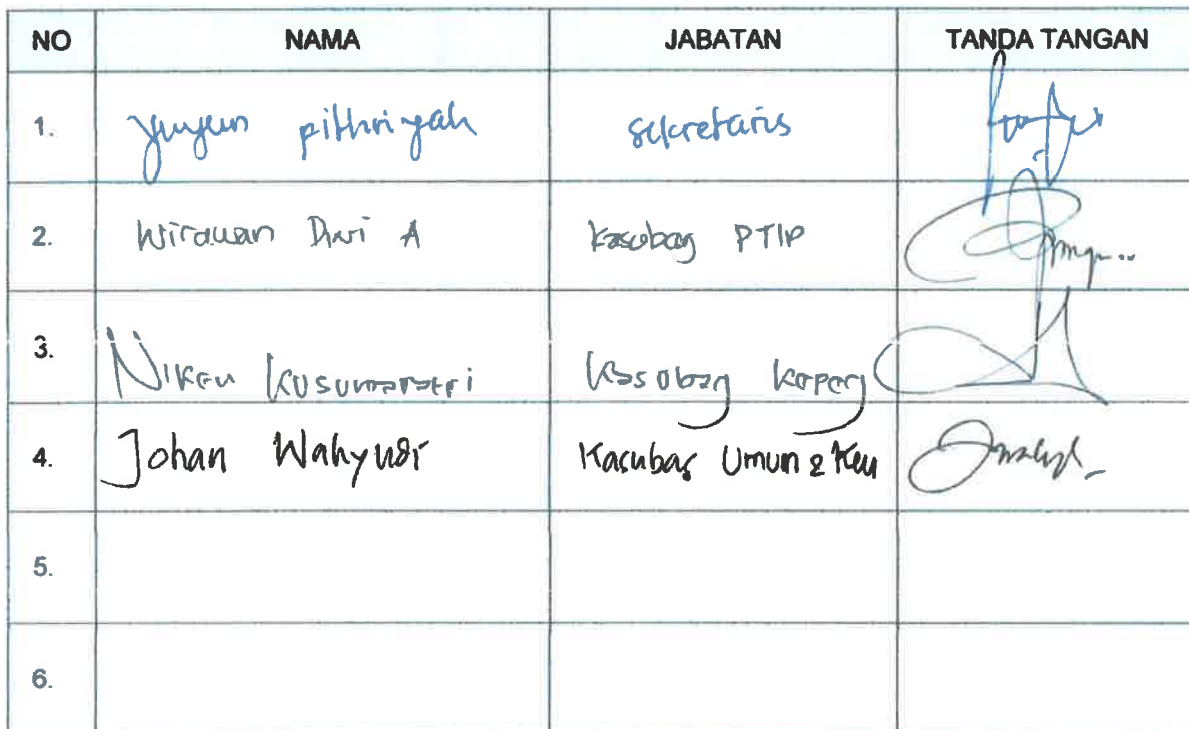 NO NAMA JABATAN TANDA TANGAN
1. Yuyun pithriyah sekretaris
2. Wirawan Dwi A Kasubag PTIP
3. Niken Kusumaratri Kasubag Kepeg
4. Johan Wahyudi Kasubag Umum & Keu
5.
6.